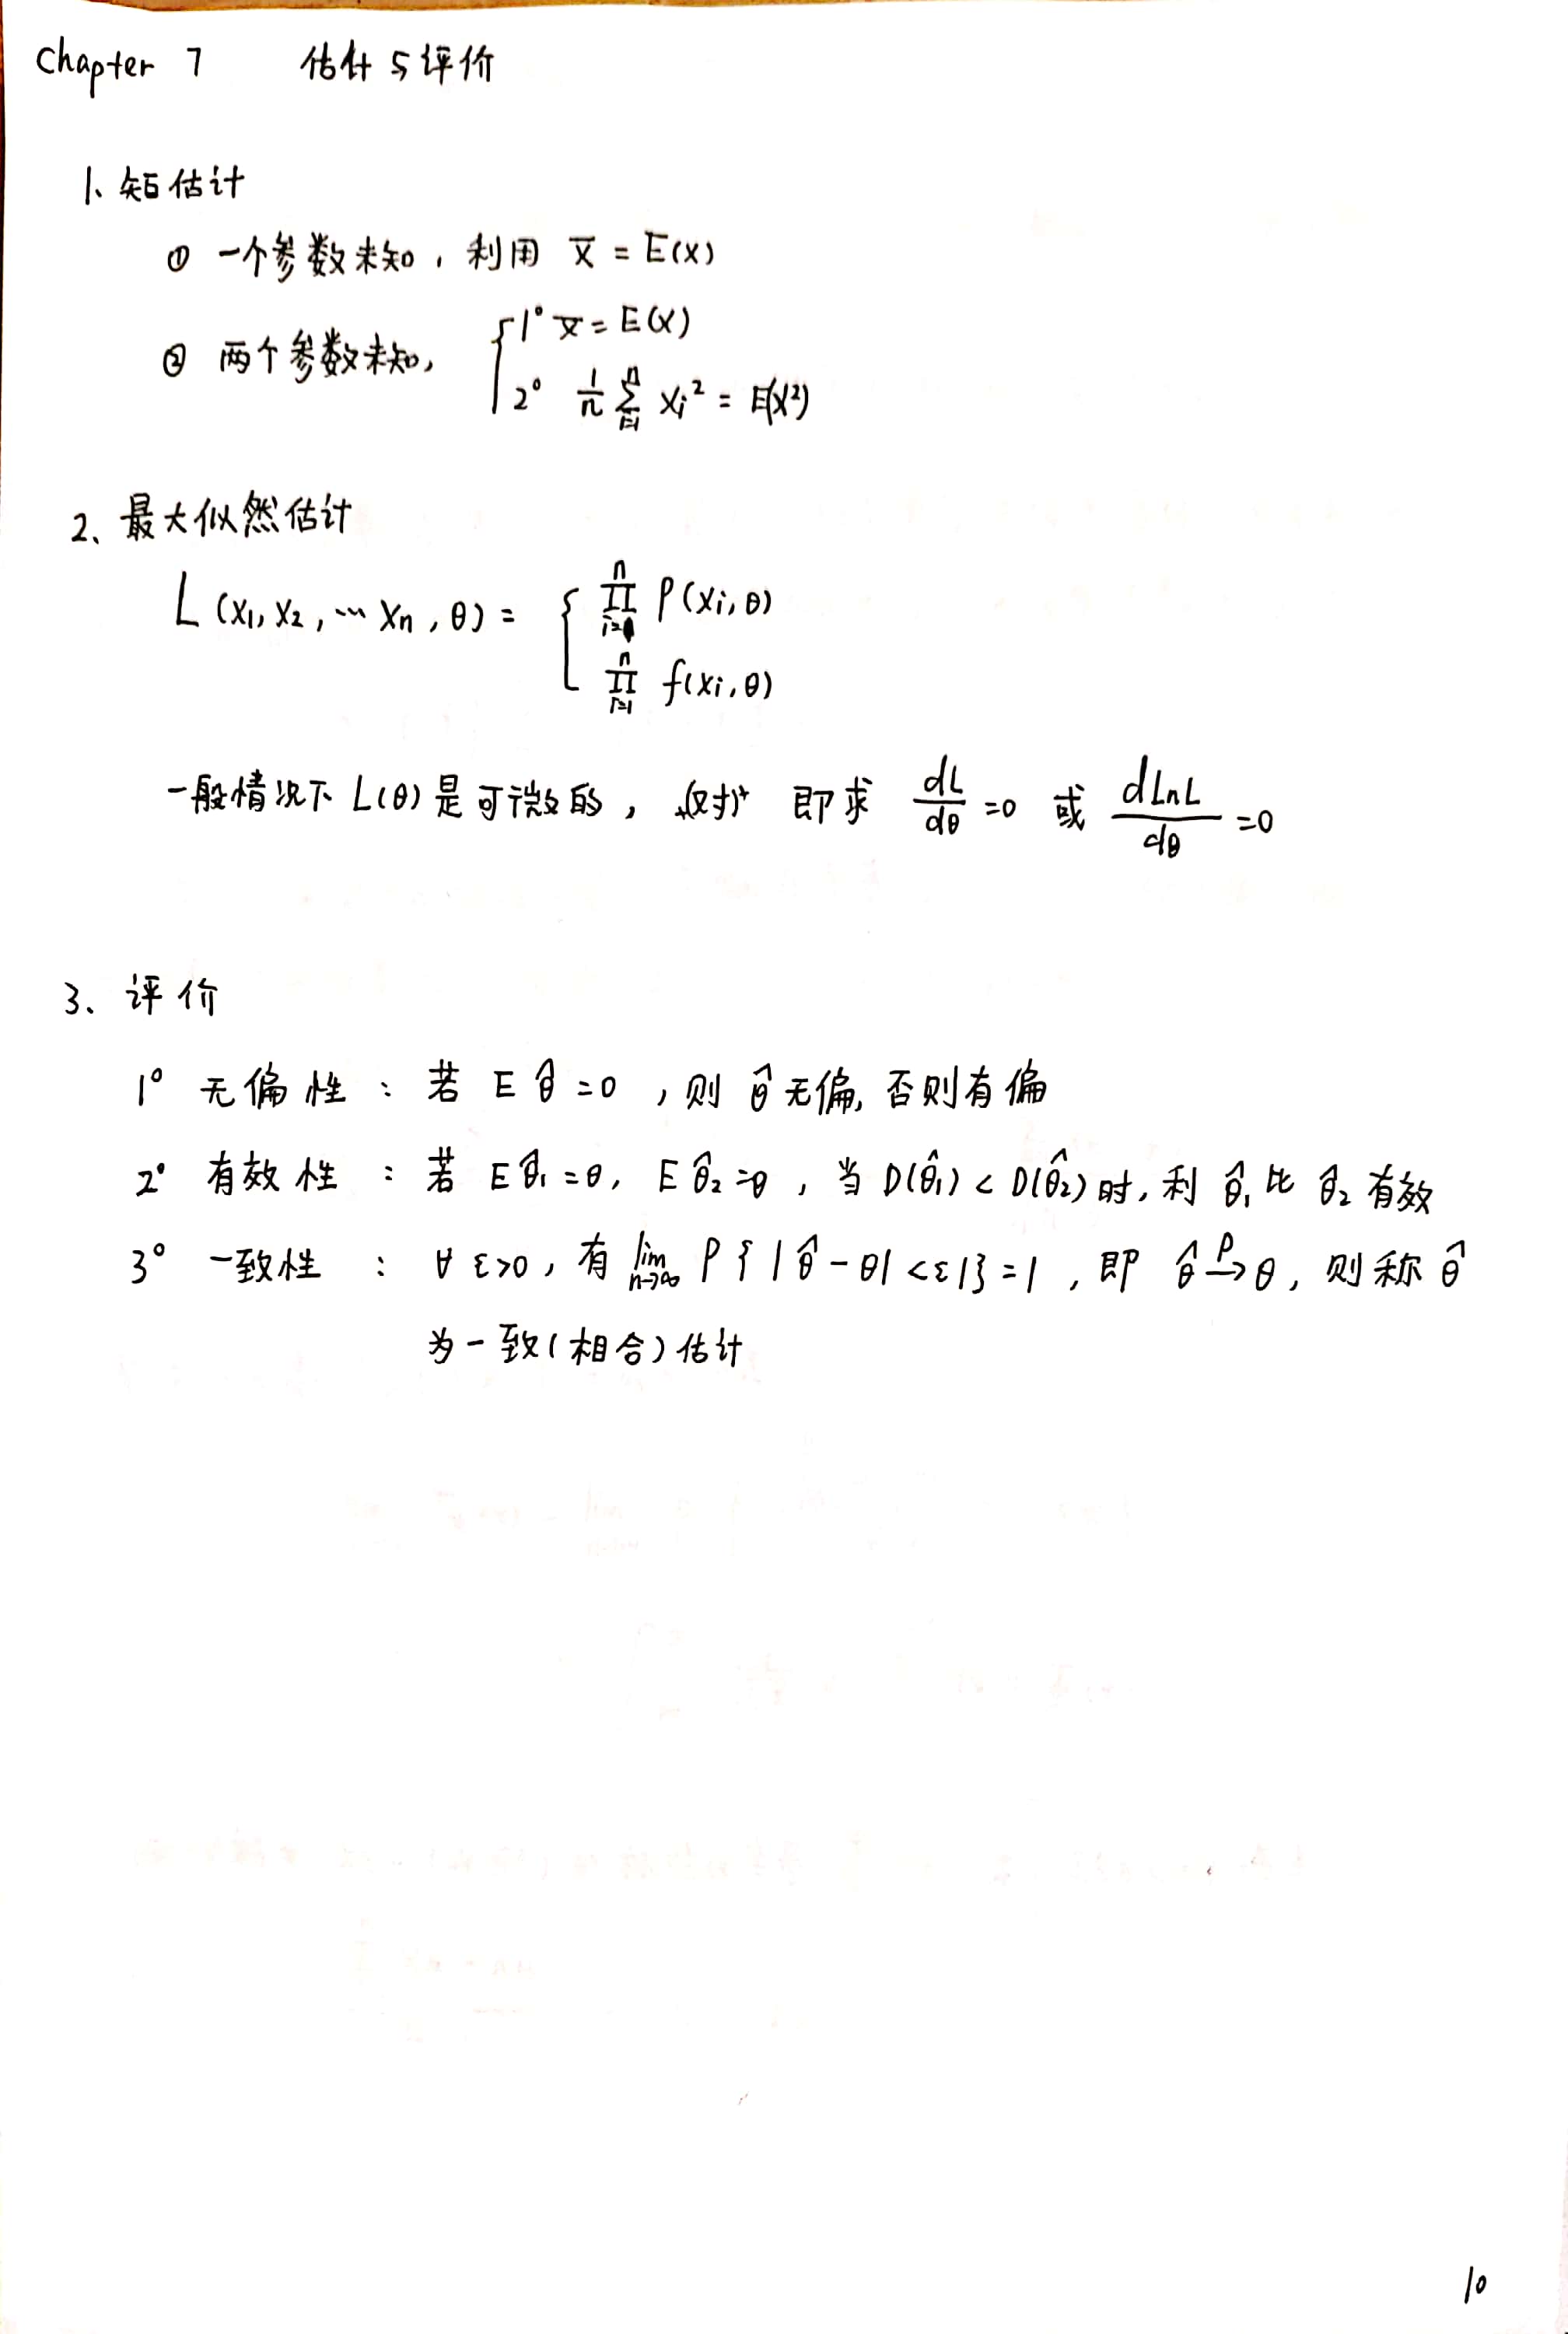 Chapter 7 估计与评价
1、矩估计
① 一个参数未知，利用 X̄ = E(X)
② 两个参数未知，
{ 1° X̄ = E(X)
2° 1/n ∑_{i=1}^{n} Xi² = E(X²)
2、最大似然估计
L(x₁, x₂, … xn, θ) = { ∏_{i=1}^{n} P(xi, θ)
∏_{i=1}^{n} f(xi, θ)
一般情况下 L(θ) 是可微的， 即求 dL/dθ =0 或 dLnL/dθ =0
3、评价
1° 无偏性 ： 若 E θ̂ =0 ，则 θ̂ 无偏, 否则有偏
2° 有效性 ： 若 E θ̂₁ =θ, E θ̂₂ =θ ，当 D(θ̂₁) < D(θ̂₂) 时, 利 θ̂₁ 比 θ̂₂ 有效
3° 一致性 ： ∀ ε>0，有 lim_{n→∞} P{ | θ̂ - θ| <ε|} =1 ，即 θ̂ →ᴾ θ，则称 θ̂
为一致(相合)估计
10